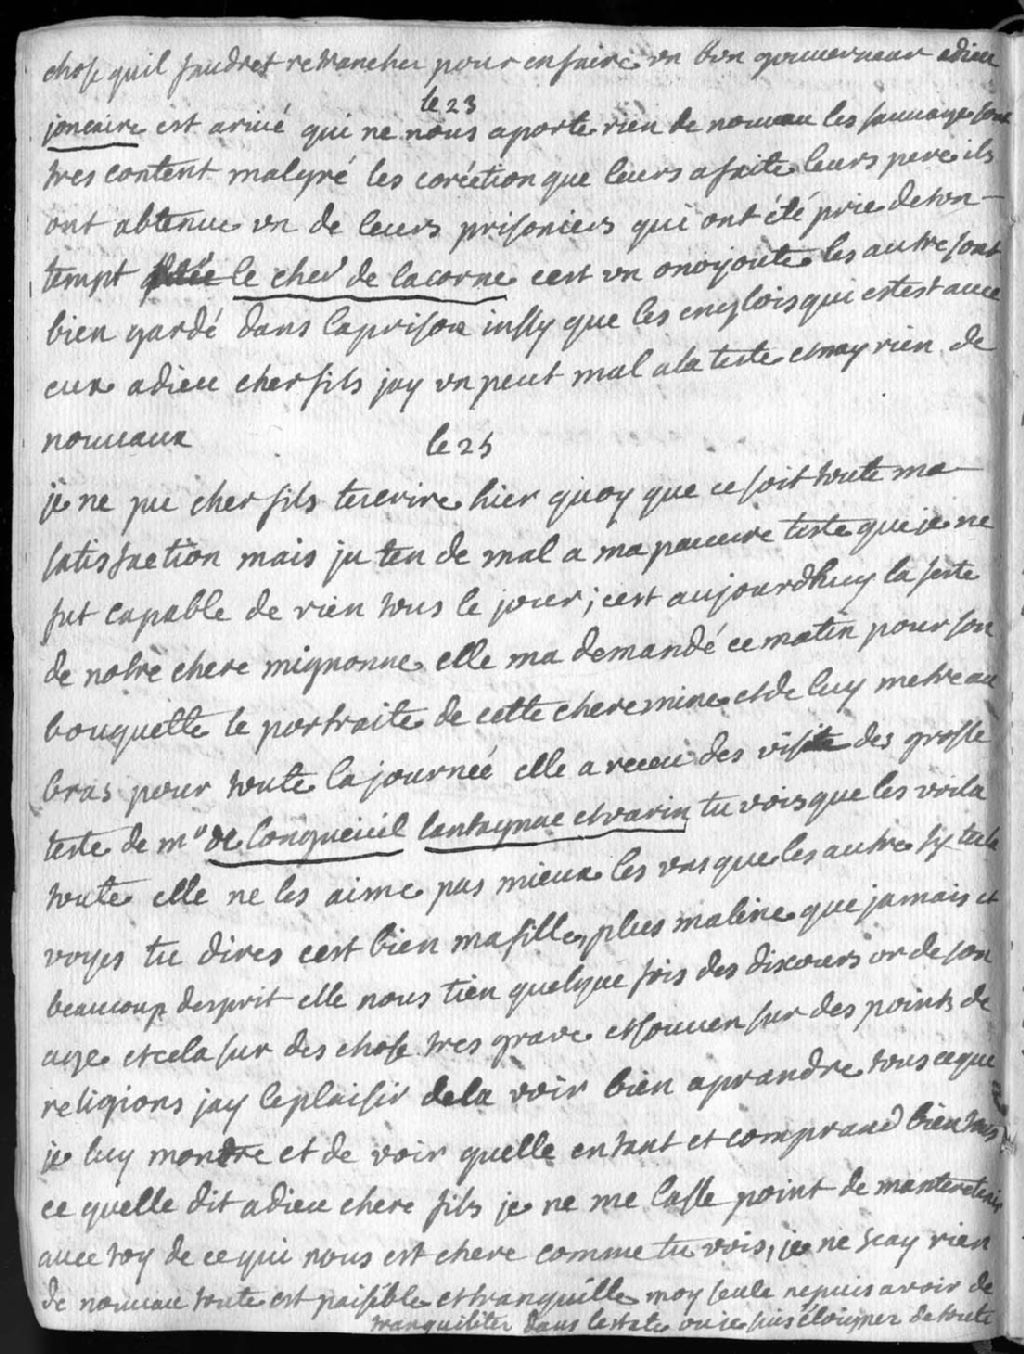 chose quil faudret retrancher pour en faire un bon gouverneur adieu
le 23
joncaire est arivé qui ne nous aporte rien de nouveau les sauvage sont
tres content malgré les corection que leurs a faite leurs pere ils
ont abtenue un de leurs prisoniers qui ont été prie de ton
tempt le chev de lacorne cest un onoyoute les autre sont
bien gardé dans laprison insy que les englois qui estest avec
eux adieu cher fils jay un peut mal a la teste et nay rien de
nouveaux
le 25
je ne pu cher fils tecrire hier quoy que ce soit toute ma
satisfaction mais ju ten de mal a ma pauvre teste que je ne
fut capable de rien tous le jour; cest aujourdhuy la feste
de notre chere mignonne elle ma demandé ce matin pour son
bouquette le portraite de cette chere mine et de luy metre au
bras pour toute la journeé elle a receu des visite des grosse
teste de mrs de longueuil lantagnac et varin tu vois que les voila
toute elle ne les aime pas mieux les uns que les autre sy tu la
voyes tu dires cest bien ma fille, plus maline que jamais et
beaucoup desprit elle nous tien quelque fois des discours or de son
age et cela sur des chose tres grave et souven sur des points de
religions jay leplaisir de la voir bien aprandre tous ceque
je luy montre et de voir quelle entant et comprand bien tous
ce quelle dit adieu chere fils je ne me lasse point de mantretenir
avec toy de ce qui nous est chere comme tu vois, je ne scay rien
de nouveau toute est paisible et tranquille moy seule ne puis avoir de
tranquiliter dans lestate ou je suis éloigner de toute